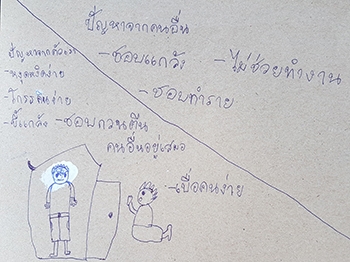 ปัญหาจากคนอื่น
-ชอบแกล้ง
-ไม่ช่วยทำงาน
-ชอบทำร้าย
ปัญหาจากตัวเรา
-หงุดหงิดง่าย
-โกรธคนง่าย
-ขี้แกล้ง -ชอบกวนตีน
คนอื่นอยู่เสมอ
-เบื่อคนง่าย